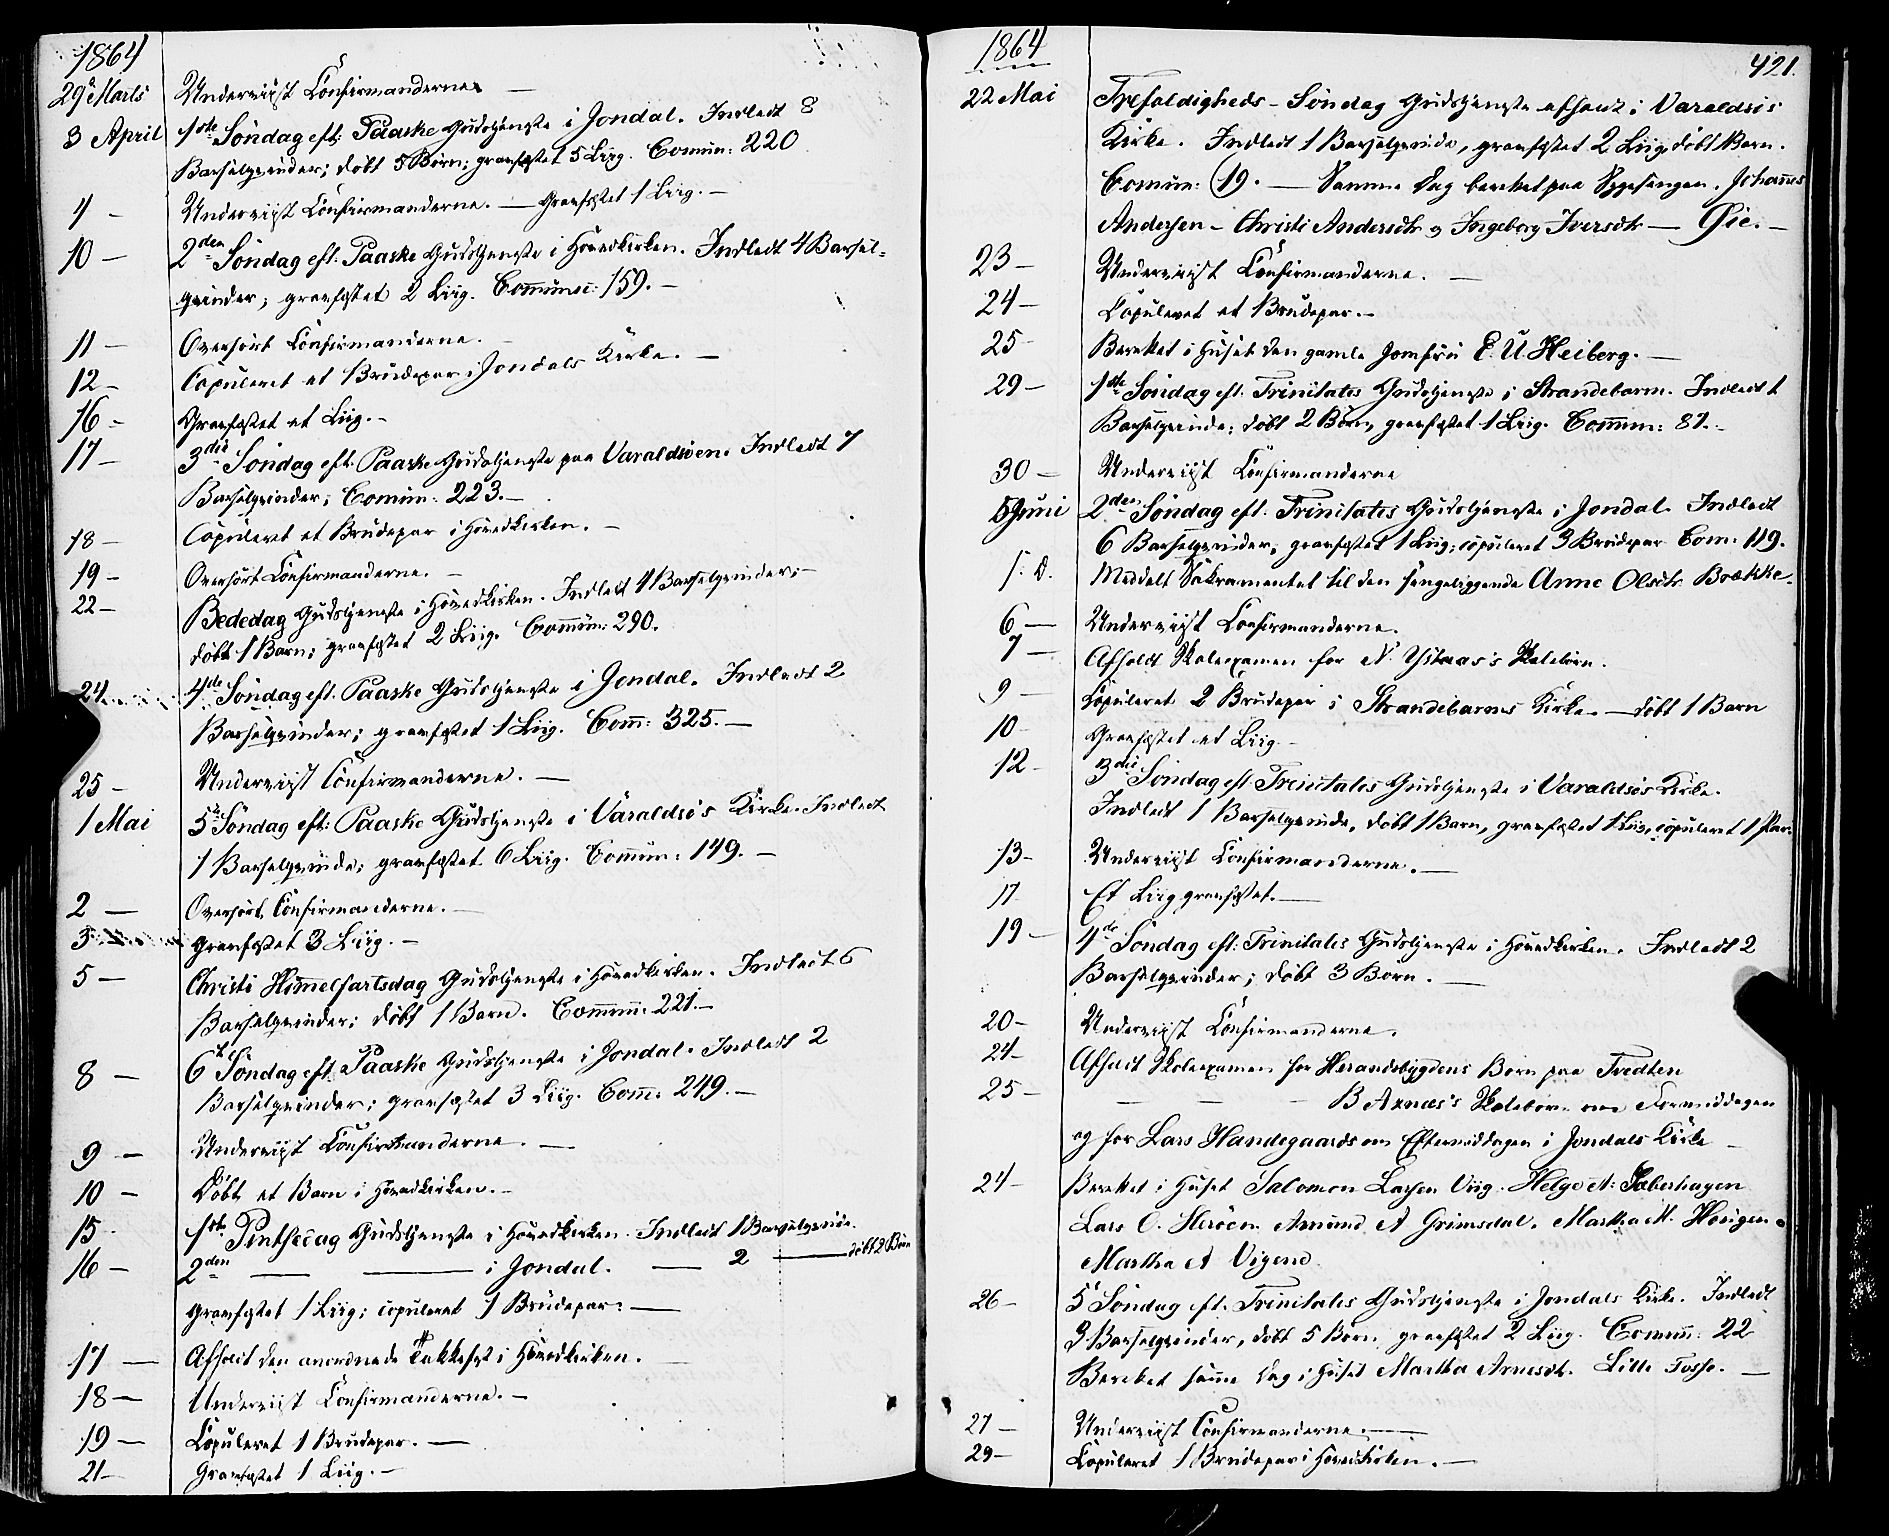 1864
29de Marts Underviist Confirmanderne. —
3 April 1ste Søndag eft: Paaske Gudstjeneste i Jondal. Indledt 8
Barselqvinder; døbt 5 Børn; gravfæstet 5 Liig. Comun: 220
4 – Underviist Confirmanderne. — Gravfæstet 1 Liig. –
10 – 2den Søndag eft. Paaske Gudstjeneste i Hovedkirken. Indledt 4 Barsel-
qvinder; gravfæstet 2 Liig. Communic: 159. –
11 – Overhørt Confirmanderne. –
12 – Copuleret et Brudepar i Jondals Kirke. –
16 – Gravfæstet et Liig. –
17 – 3die Søndag eft. Paaske Gudstjeneste paa Varaldsøen. Indledt 7
Barselqvinder; Comun: 223. –
18 – Copuleret et Brudepar i Hovedkirken. –
19 – Overhørt Confirmanderne. –
22 – Bededag Gudstjeneste i Hovedkirken. Indledt 4 Barselqvinder; –
døbt 1 Barn; gravfæstet 2 Liig. Commun: 290.
24 4de Søndag eft. Paaske Gudstjeneste i Jondal. Indledt 2
Barselqvinder; gravfæstet 1 Liig. Com: 325. –
25 – Underviist Confirmanderne. –
1 Mai 5te Søndag eft: Paaske Gudstjeneste i Varaldsø's Kirke. Indledt
1 Barselqvinde; gravfæstet 6 Liig. Commun: 149. –
2 — Overhørt Confirmanderne. –
3 – gravfæstet 3 Liig. –
5 – Christi Himmelfartsdag Gudstjeneste i Hovedkirken. Indledt 6
Barselqvinder; døbt 1 Barn. Commun: 221. –
8 – 6te Søndag eft. Paaske Gudstjeneste i Jondal. Indledt 2
Barselqvinder; gravfæstet 3 Liig. Com: 249. –
9 – Underviist Confirmanderne. —
10 – Døbt et Barn i Hovedkirken. –
15 – 1ste Pintsedag Gudstjeneste i Hovedkirken. Indledt 1 Barselqvinde.
16 – 2den — — i Jondal. — 2 — døbt 2 Børn
Gravfæstet 1 Liig; copuleret 1 Brudepar. —
17 — Afholdt den anordnede Takkefest i Hovedkirken. —
18 — Underviist Confirmanderne. –
19 — Copuleret 1 Brudepar. —
21 – Gravfæstet 1 Liig. –
1864
421.
22 Mai Trefoldigheds-Søndag Gudstjeneste afholdt i Varaldsøs
Kirke. Indledt 1 Barselqvinde, gravfæstet 2 Liig, døbt 1 Barn.
Comun: 19. — Samme Dag berettet paa Sygesengen, Johannes
Andersen – Christi Andersdtr og Ingeborg Iversdtr — Øie. –
23 – Underviist Confirmanderne. —
24 – Copuleret et Brudepar. –
25 Berettet i Huset den gamle Jomfru E. U. Heiberg. —
29 – 1ste Søndag eft. Trinitatis Gudstjeneste i Strandebarm. Indledt 1
Barselqvinde; døbt 2 Børn, gravfæstet 1 Liig. Commun: 81. –
30 – Underviist Confirmanderne
5 Juni 2den Søndag eft. Trinitatis Gudstjeneste i Jondal. Indledt
6 Barselqvinder, gravfæstet 1 Liig; copuleret 3 Brudepar Com: 119.
s: D. Meddelt Sakramentet til den sengeliggende Anne Olsdtr Brække.
6 — Underviist Confirmanderne.
7 — Afholdt Skoleexamen for N. Ystaas's Skolebørn.
9 – Copuleret 2 Brudepar i Strandebarms Kirke. — døbt 1 Barn
10 Gravfæstet et Liig –
12 – 3die Søndag eft. Trinitatis Gudstjeneste i Varaldsøs Kirke.
Indledt 1 Barselqvinde, døbt 1 Barn, gravfæstet 1 Liig, copuleret 1 Par.
13 – Underviist Confirmanderne. —
17 Et Liig gravfæstet. —
19 – 4de Søndag eft: Trinitatis Gudstjeneste i Hovedkirken. Indledt 2
Barselqvinder; døbt 3 Børn. —
20 – Underviist Confirmanderne.
24 – Afholdt Skoleexamen for Herandsbygdens Børn paa Tredten
25 – — — — B Axnæs's Skolebørn om Formiddagen
og for Lars Handegaards om Eftermiddagen i Jondals Kirke –
24 – Berettet i Huset Salomon Larsen Viig. Helge N: Saberhagen
Lars O. Herøen Amund A Grimsdal. Martha M. Hougen.
Martha A Vigene
26 – 5te Søndag eft. Trinitatis Gudstjeneste i Jondals Kirke. Indledt
3 Barselqvinder, døbt 5 Børn gravfæstet 2 Liig. Commun: 22
Berettet samme Dag i Huset Martha Arnesdtr. Lille Fosse. —
27 – Underviist Confirmanderne. —
29 – Copuleret 1 Brudepar i Hovedkirken. —